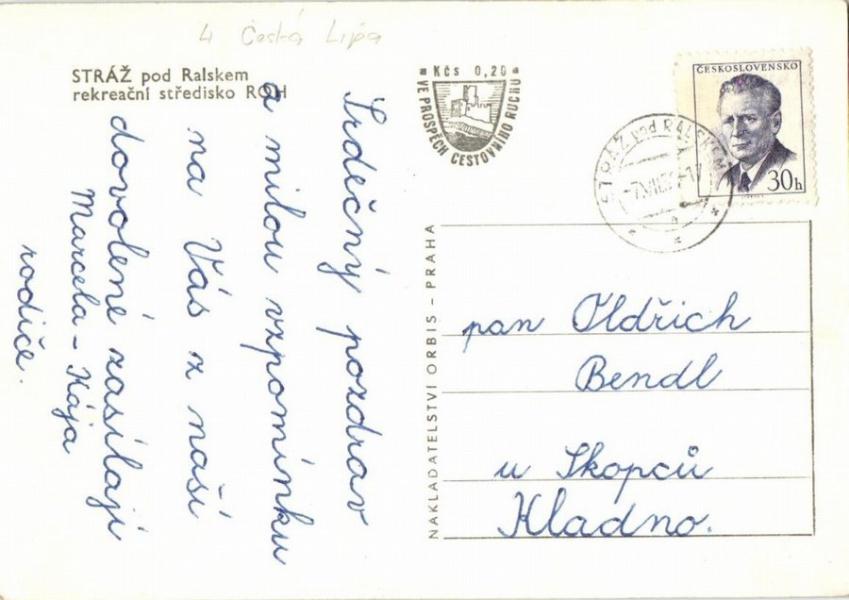 4 Česká Lípa
STRÁŽ pod Ralskem
rekreační středisko ROH
Srdečný pozdrav
a milou vzpomínku
na Vás z naší
dovolené zasílají
Marcela - Kája
rodiče.
Kčs 0,20
VE PROSPĚCH CESTOVNÍHO RUCHU
ČESKOSLOVENSKO
30h
STRÁŽ pod RALSKEM
NAKLADATELSTVÍ ORBIS – PRAHA
pan Oldřich
Bendl
u Skopců
Kladno.